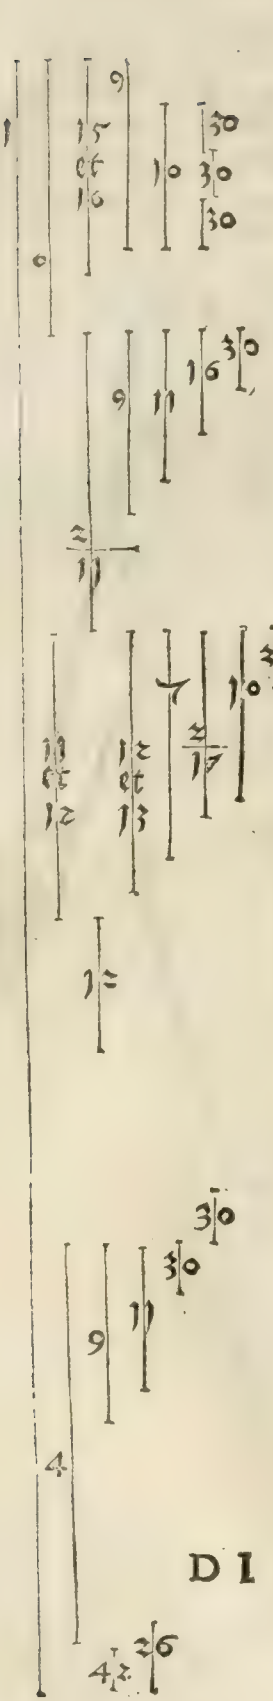 1
6
15
et
16
9
10
30
30
30
9
11
16
30
2
11
11
et
12
12
et
13
7
2
17
10
12
4
9
11
30
30
DI
42
26